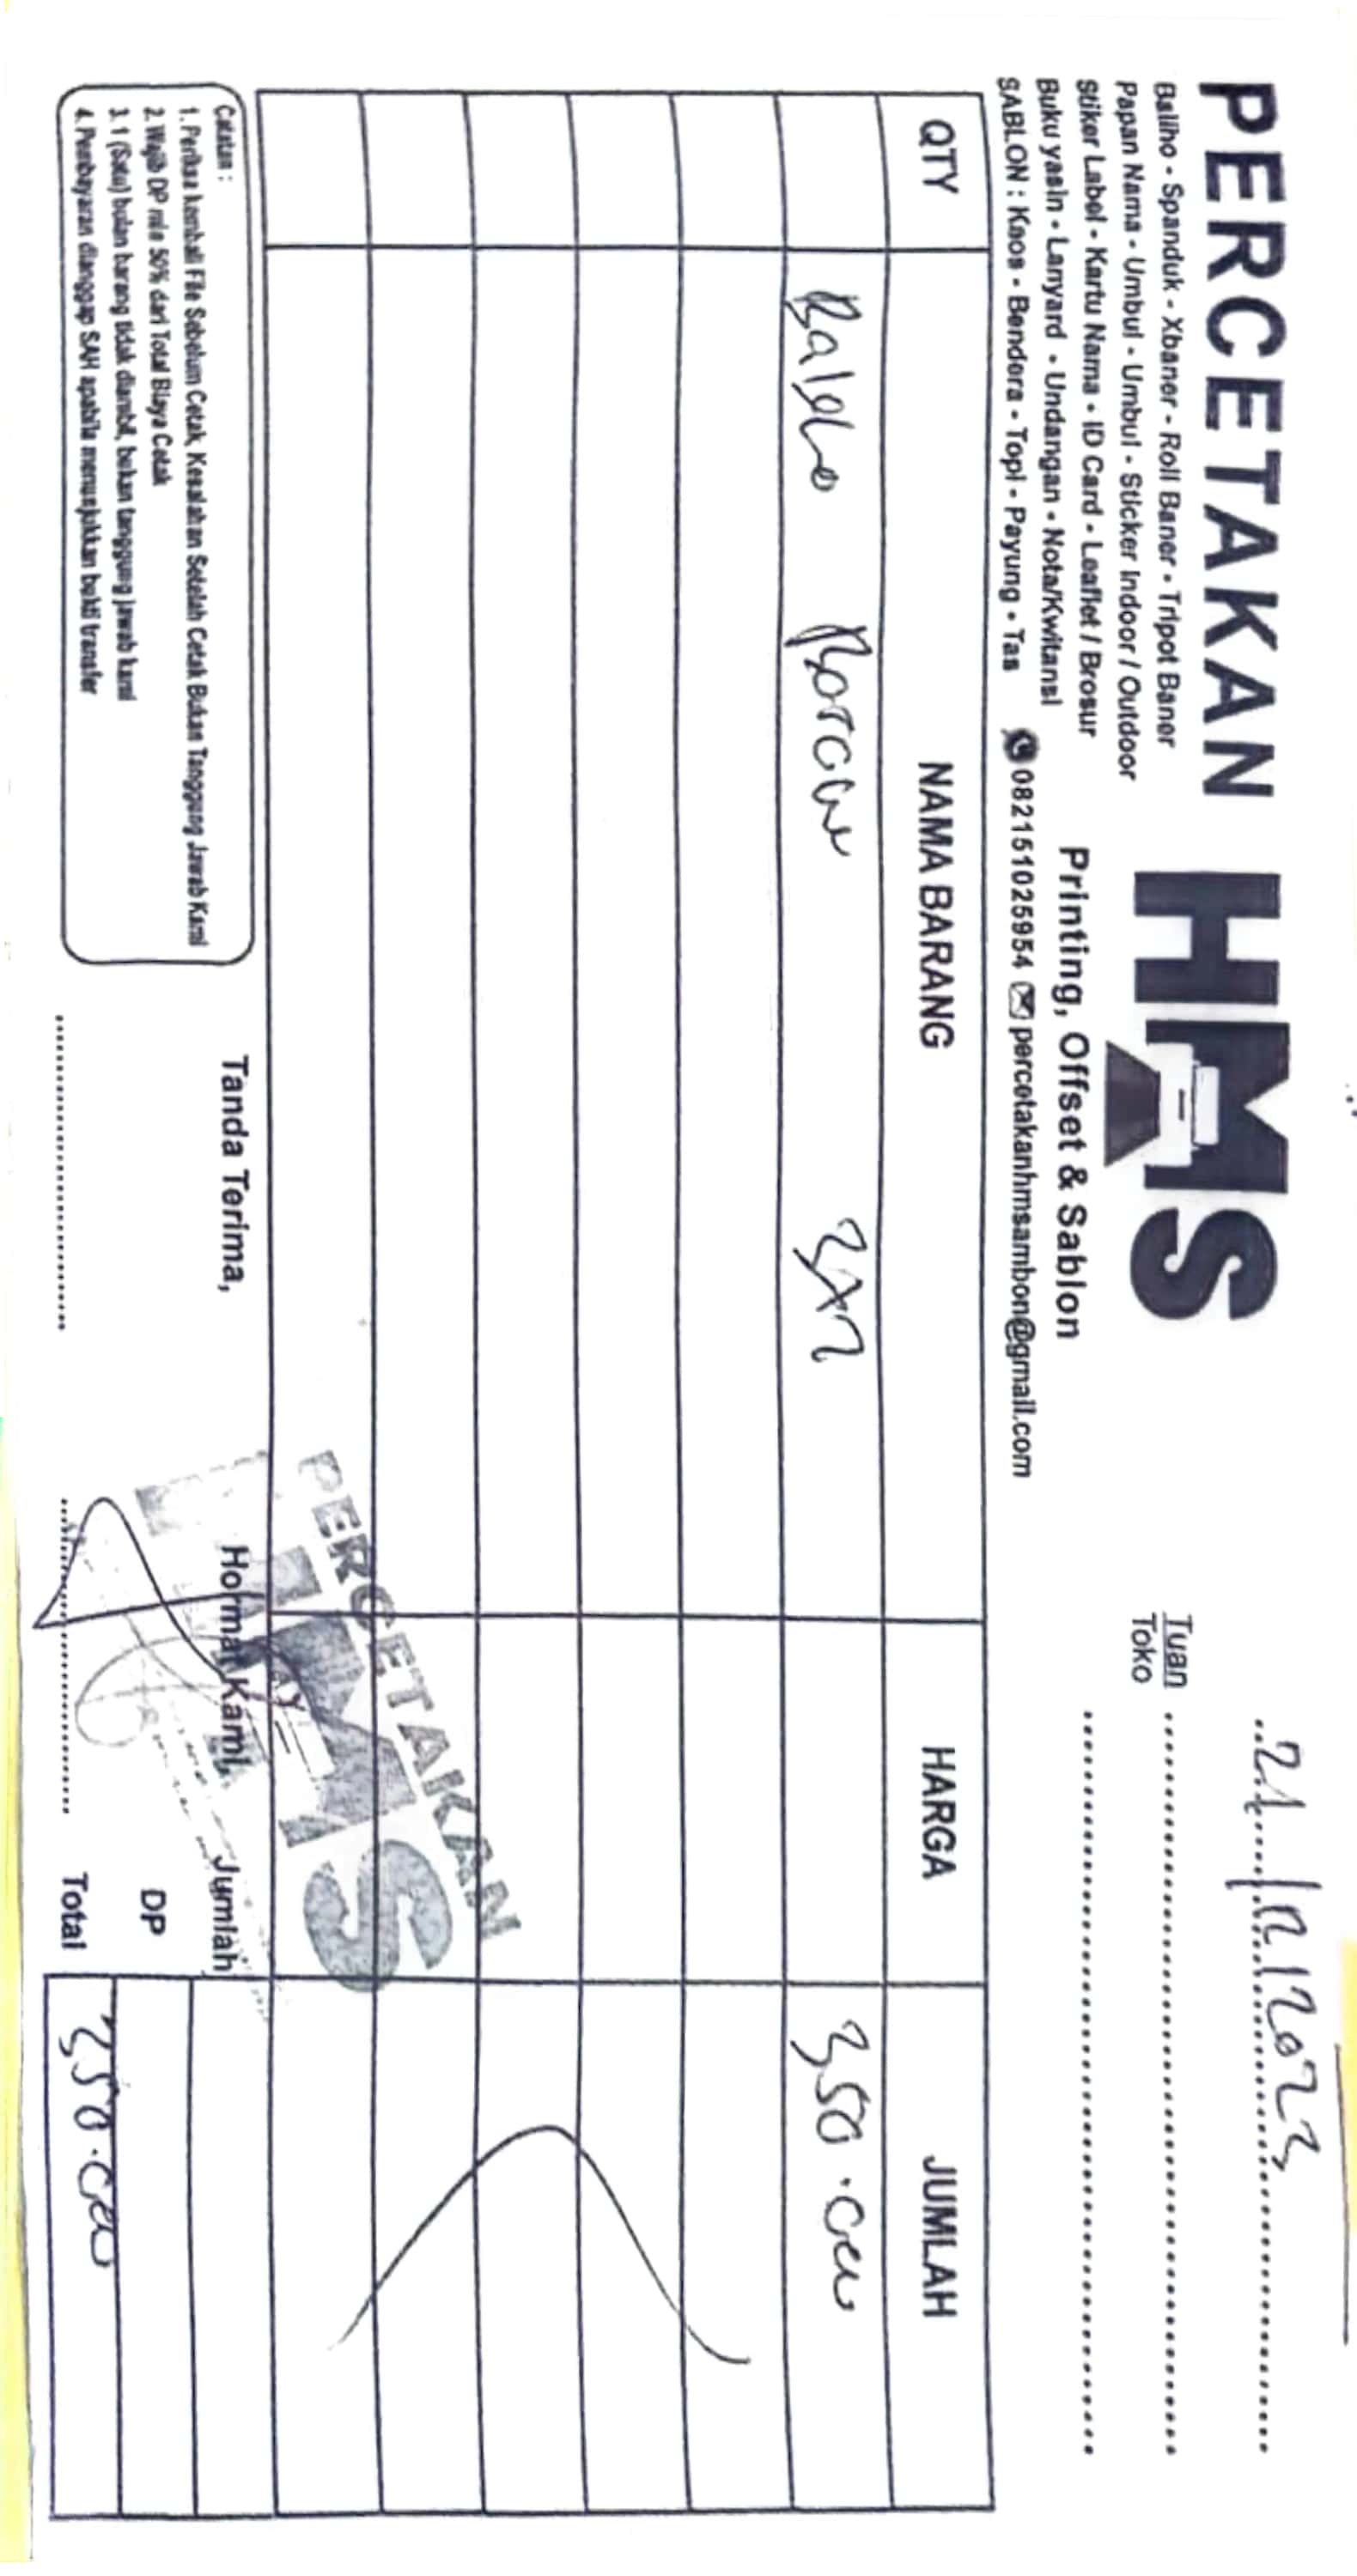 PERCETAKAN HMS
Baliho - Spanduk - Xbaner - Roll Baner - Tripot Baner
Papan Nama - Umbul - Umbul - Sticker Indoor / Outdoor
Stiker Label - Kartu Nama - ID Card - Leaflet / Brosur
Buku yasin - Lanyard - Undangan - Nota/Kwitansi
SABLON : Kaos - Bendera - Topi - Payung - Tas
Printing, Offset & Sablon
082151025954 percetakanhmsambon@gmail.com
21/12/2023
Tuan
Toko
QTY NAMA BARANG HARGA JUMLAH
3x2 350.000
Catatan :
1. Periksa kembali File Sebelum Cetak, Kesalahan Setelah Cetak Bukan Tanggung Jawab Kami
2. Wajib DP min 50% dari Total Biaya Cetak
3. 1 (Satu) bulan barang tidak diambil, bukan tanggung jawab kami
4. Pembayaran dianggap SAH apabila menunjukkan bukti transfer
Tanda Terima,
Hormat Kami,
PERCETAKAN
HMS
Jumlah
DP
Total 350.000